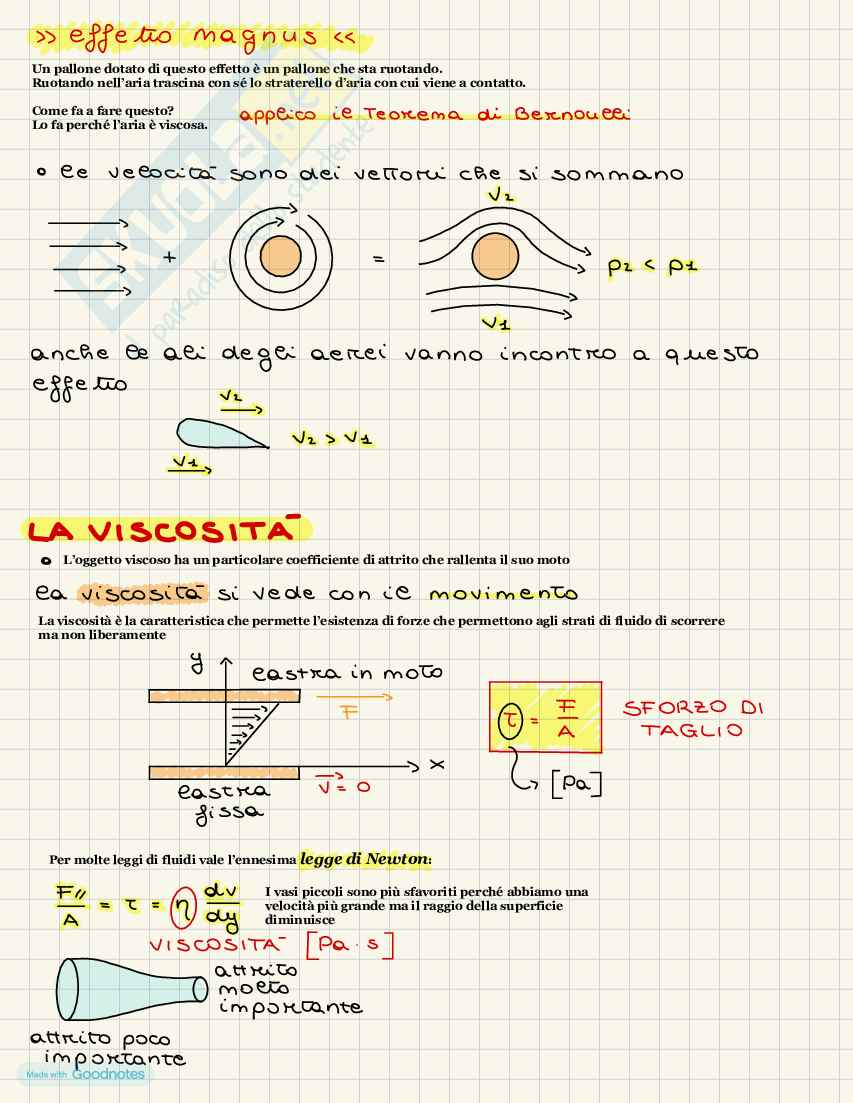 >> effetto magnus <<
Un pallone dotato di questo effetto è un pallone che sta ruotando.
Ruotando nell'aria trascina con sé lo straterello d'aria con cui viene a contatto.
Come fa a fare questo?
Lo fa perché l'aria è viscosa.
applico il Teorema di Bernoulli
le velocità sono dei vettori che si sommano
v2
+
=
p2 < p1
v1
anche le ali degli aerei vanno incontro a questo
effetto
v2
v2 > v1
v1
LA VISCOSITÀ
L'oggetto viscoso ha un particolare coefficiente di attrito che rallenta il suo moto
la viscosità si vede con il movimento
La viscosità è la caratteristica che permette l'esistenza di forze che permettono agli strati di fluido di scorrere
ma non liberamente
y
lastra in moto
F
x
lastra
fissa
v = 0
τ = F/A
SFORZO DI
TAGLIO
[Pa]
Per molte leggi di fluidi vale l'ennesima legge di Newton:
F//
A = τ = η dv/dy
I vasi piccoli sono più sfavoriti perché abbiamo una
velocità più grande ma il raggio della superficie
diminuisce
VISCOSITÀ [Pa · s]
attrito
molto
importante
attrito poco
importante
Made with Goodnotes